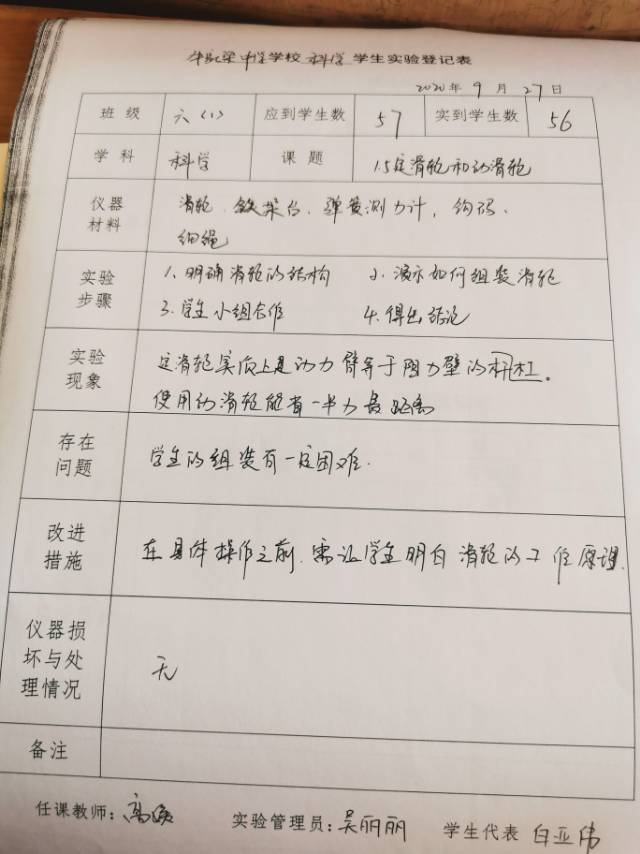 中学学校 科学 学生实验登记表
2020年 9 月 27 日
班 级 六(1) 应到学生数 57 实到学生数 56
学 科 科学 课 题 1.5定滑轮和动滑轮
仪器
材料
滑轮、铁架台、弹簧测力计,钩码、
细绳
实验
步骤
1、明确滑轮的结构 2、演示如何组装滑轮
3、学生小组合作 4、得出结论
实验
现象
定滑轮实质上是动力臂等于阻力壁的杠杆。
使用动滑轮能省一半力 距离
存在
问题
学生的组装有一定困难.
改进
措施
在具体操作之前.需让学生明白滑轮的工作原理.
仪器损
坏与处
理情况
无
备注
任课教师:高 实验管理员:吴丽丽 学生代表 白亚伟